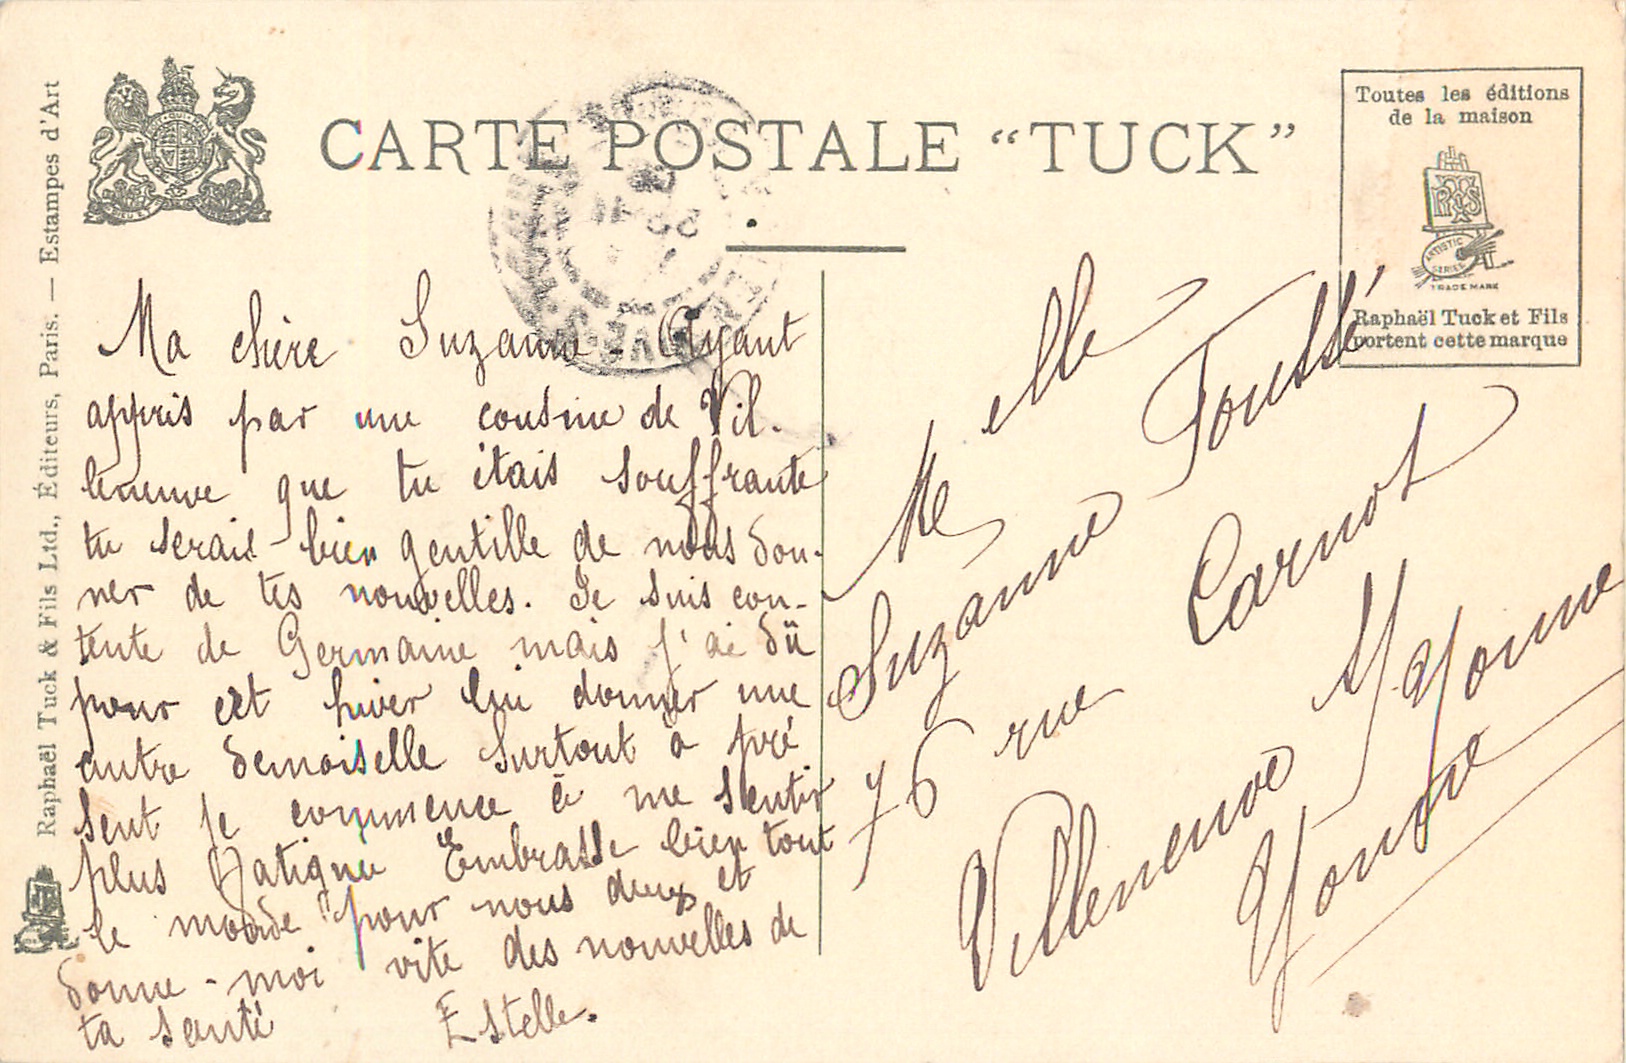 CARTE POSTALE “TUCK”
Toutes les éditions
de la maison
ARTISTIC
SERIES
TRADE MARK
Raphaël Tuck et Fils
portent cette marque
Raphaël Tuck & Fils Ltd., Éditeurs, Paris. — Estampes d'Art
Ma chère Suzanne - Ayant
appris par une cousine de Vil-
leneuve que tu étais souffrante
tu serais bien gentille de nous don-
ner de tes nouvelles. Je suis con-
tente de Germaine mais j'ai dû
pour cet hiver lui donner une
autre demoiselle surtout à pré
sent je commence à me sentir
plus fatiguée Embrasse bien tout
le monde pour nous deux et
donne-moi vite des nouvelles de
ta santé Estelle.
Melle
Suzanne Toussé
76 rue Carnot
Villeneuve s/ Yonne
Yonne